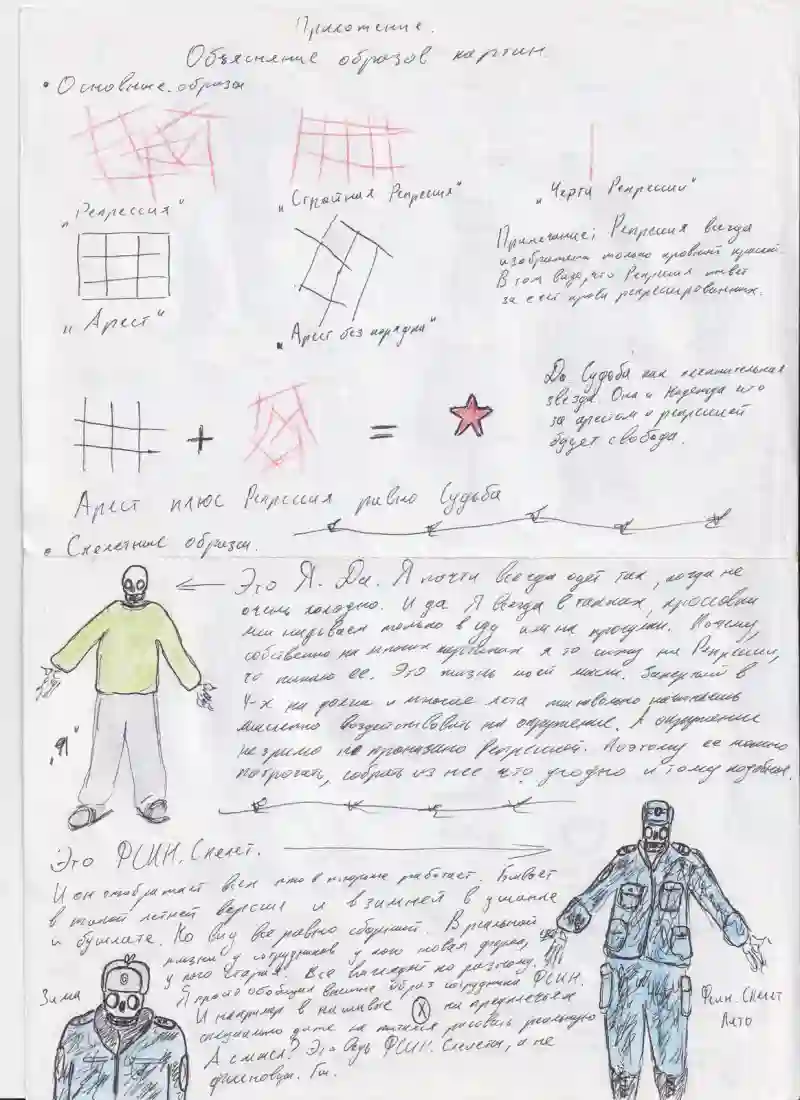 Приложение.
Объяснение образов картин.
• Основные образы
„Репрессия"
„Стройная Репрессия"
„Черты Репрессии"
Примечание: Репрессия всегда
изображена только кровавой краской.
В том виде, что Репрессия живёт
за счёт крови репрессированных.
„Арест"
„Арест без порядка"
+
=
Да Судьба как
звезда. Она и Надежда что
за арестом и репрессией
будет свобода.
Арест плюс Репрессия равно Судьба
• Скелетные образы.
Это Я. Да. Я почти всегда одет так, когда не
очень холодно. И да Я всегда в тапках, кроссовки
мы надеваем только в суд или на прогулки. Почему,
собственно на многих картинах я то сижу на Репрессии,
то пинаю её. Это жизнь моей мысли. Запертый в
4-х на долгие и многие лета
мысленно воздействовать на окружение. А окружение
незримо но пронизано Репрессией. Поэтому её можно
потрогать, собрать из неё что угодно и тому подобное.
„Я"
Это ФСИН.Скелет.
И он отображает всех кто в тюрьме работает. Бывает
в такой летней версии и в зимней в ушанке
и бушлате. Но вид всё равно сборный. В реальной
жизни у сотрудников у кого новая форма,
у кого старая. Все выглядят по разному.
Я просто обобщил внешне образ сотрудника ФСИН.
И например в нашивке Х на предплечьях
специально даже не пытался рисовать реальную
А смысл? Это ведь ФСИН.Скелеты, а не
Зима
ФСИН.Скелет
Лето